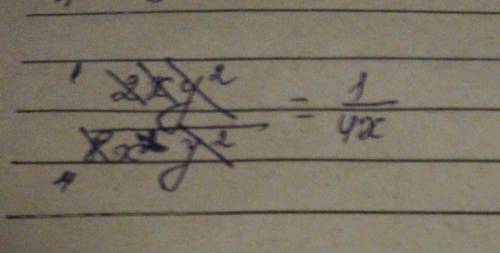 1 2xy² / 8x²y² 4 = 1/4x